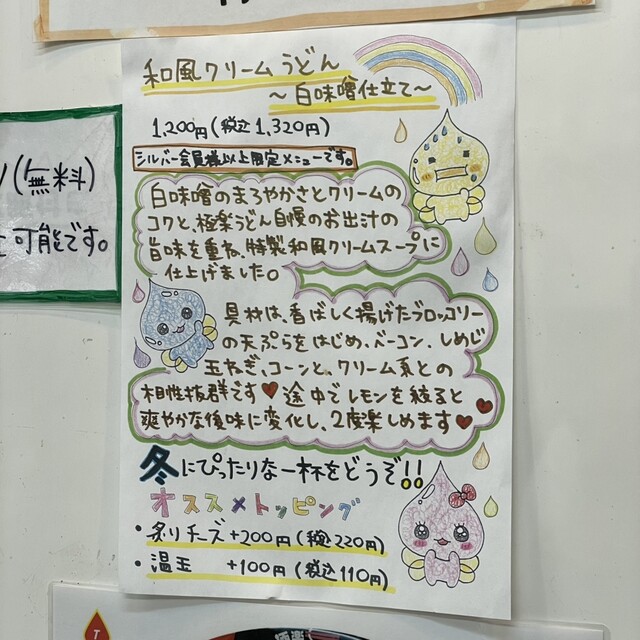 和風クリームうどん
～白味噌仕立て～
1,200円(税込1,320円)
シルバー会員様以上限定メニューです。
白味噌のまろやかさとクリームの
コクと、極楽うどん自慢のお出汁の
旨味を重ね、特製和風クリームスープに
仕上げました。
具材は、香ばしく揚げたブロッコリー
の天ぷらをはじめ、ベーコン、しめじ
玉ねぎ、コーンと、クリーム系との
相性抜群です♥途中でレモンを絞ると
爽やかな後味に変化し、2度楽しめます♥♥
冬にぴったりな一杯をどうぞ!!
オススメトッピング
・炙りチーズ+200円(税込220円)
・温玉 +100円(税込110円)
(無料)
可能です。